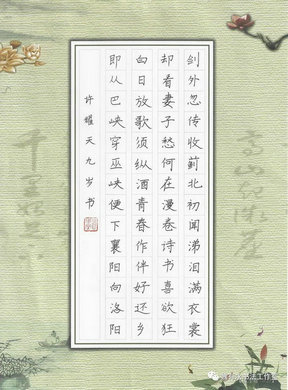 剑外忽传收蓟北初闻涕泪满衣裳
却看妻子愁何在漫卷诗书喜欲狂
白日放歌须纵酒青春作伴好还乡
即从巴峡穿巫峡便下襄阳向洛阳
许耀天九岁书
工作室